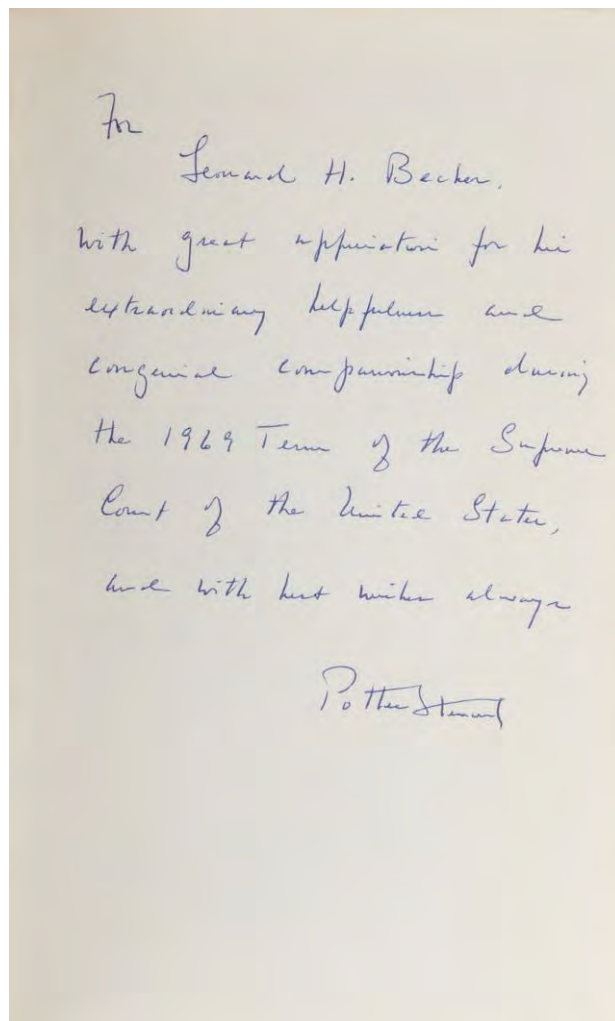 For
Leonard H. Becker,
with great appreciation for his
extraordinary helpfulness and
congenial companionship during
the 1969 Term of the Supreme
Court of the United States,
and with best wishes always
Potter Stewart